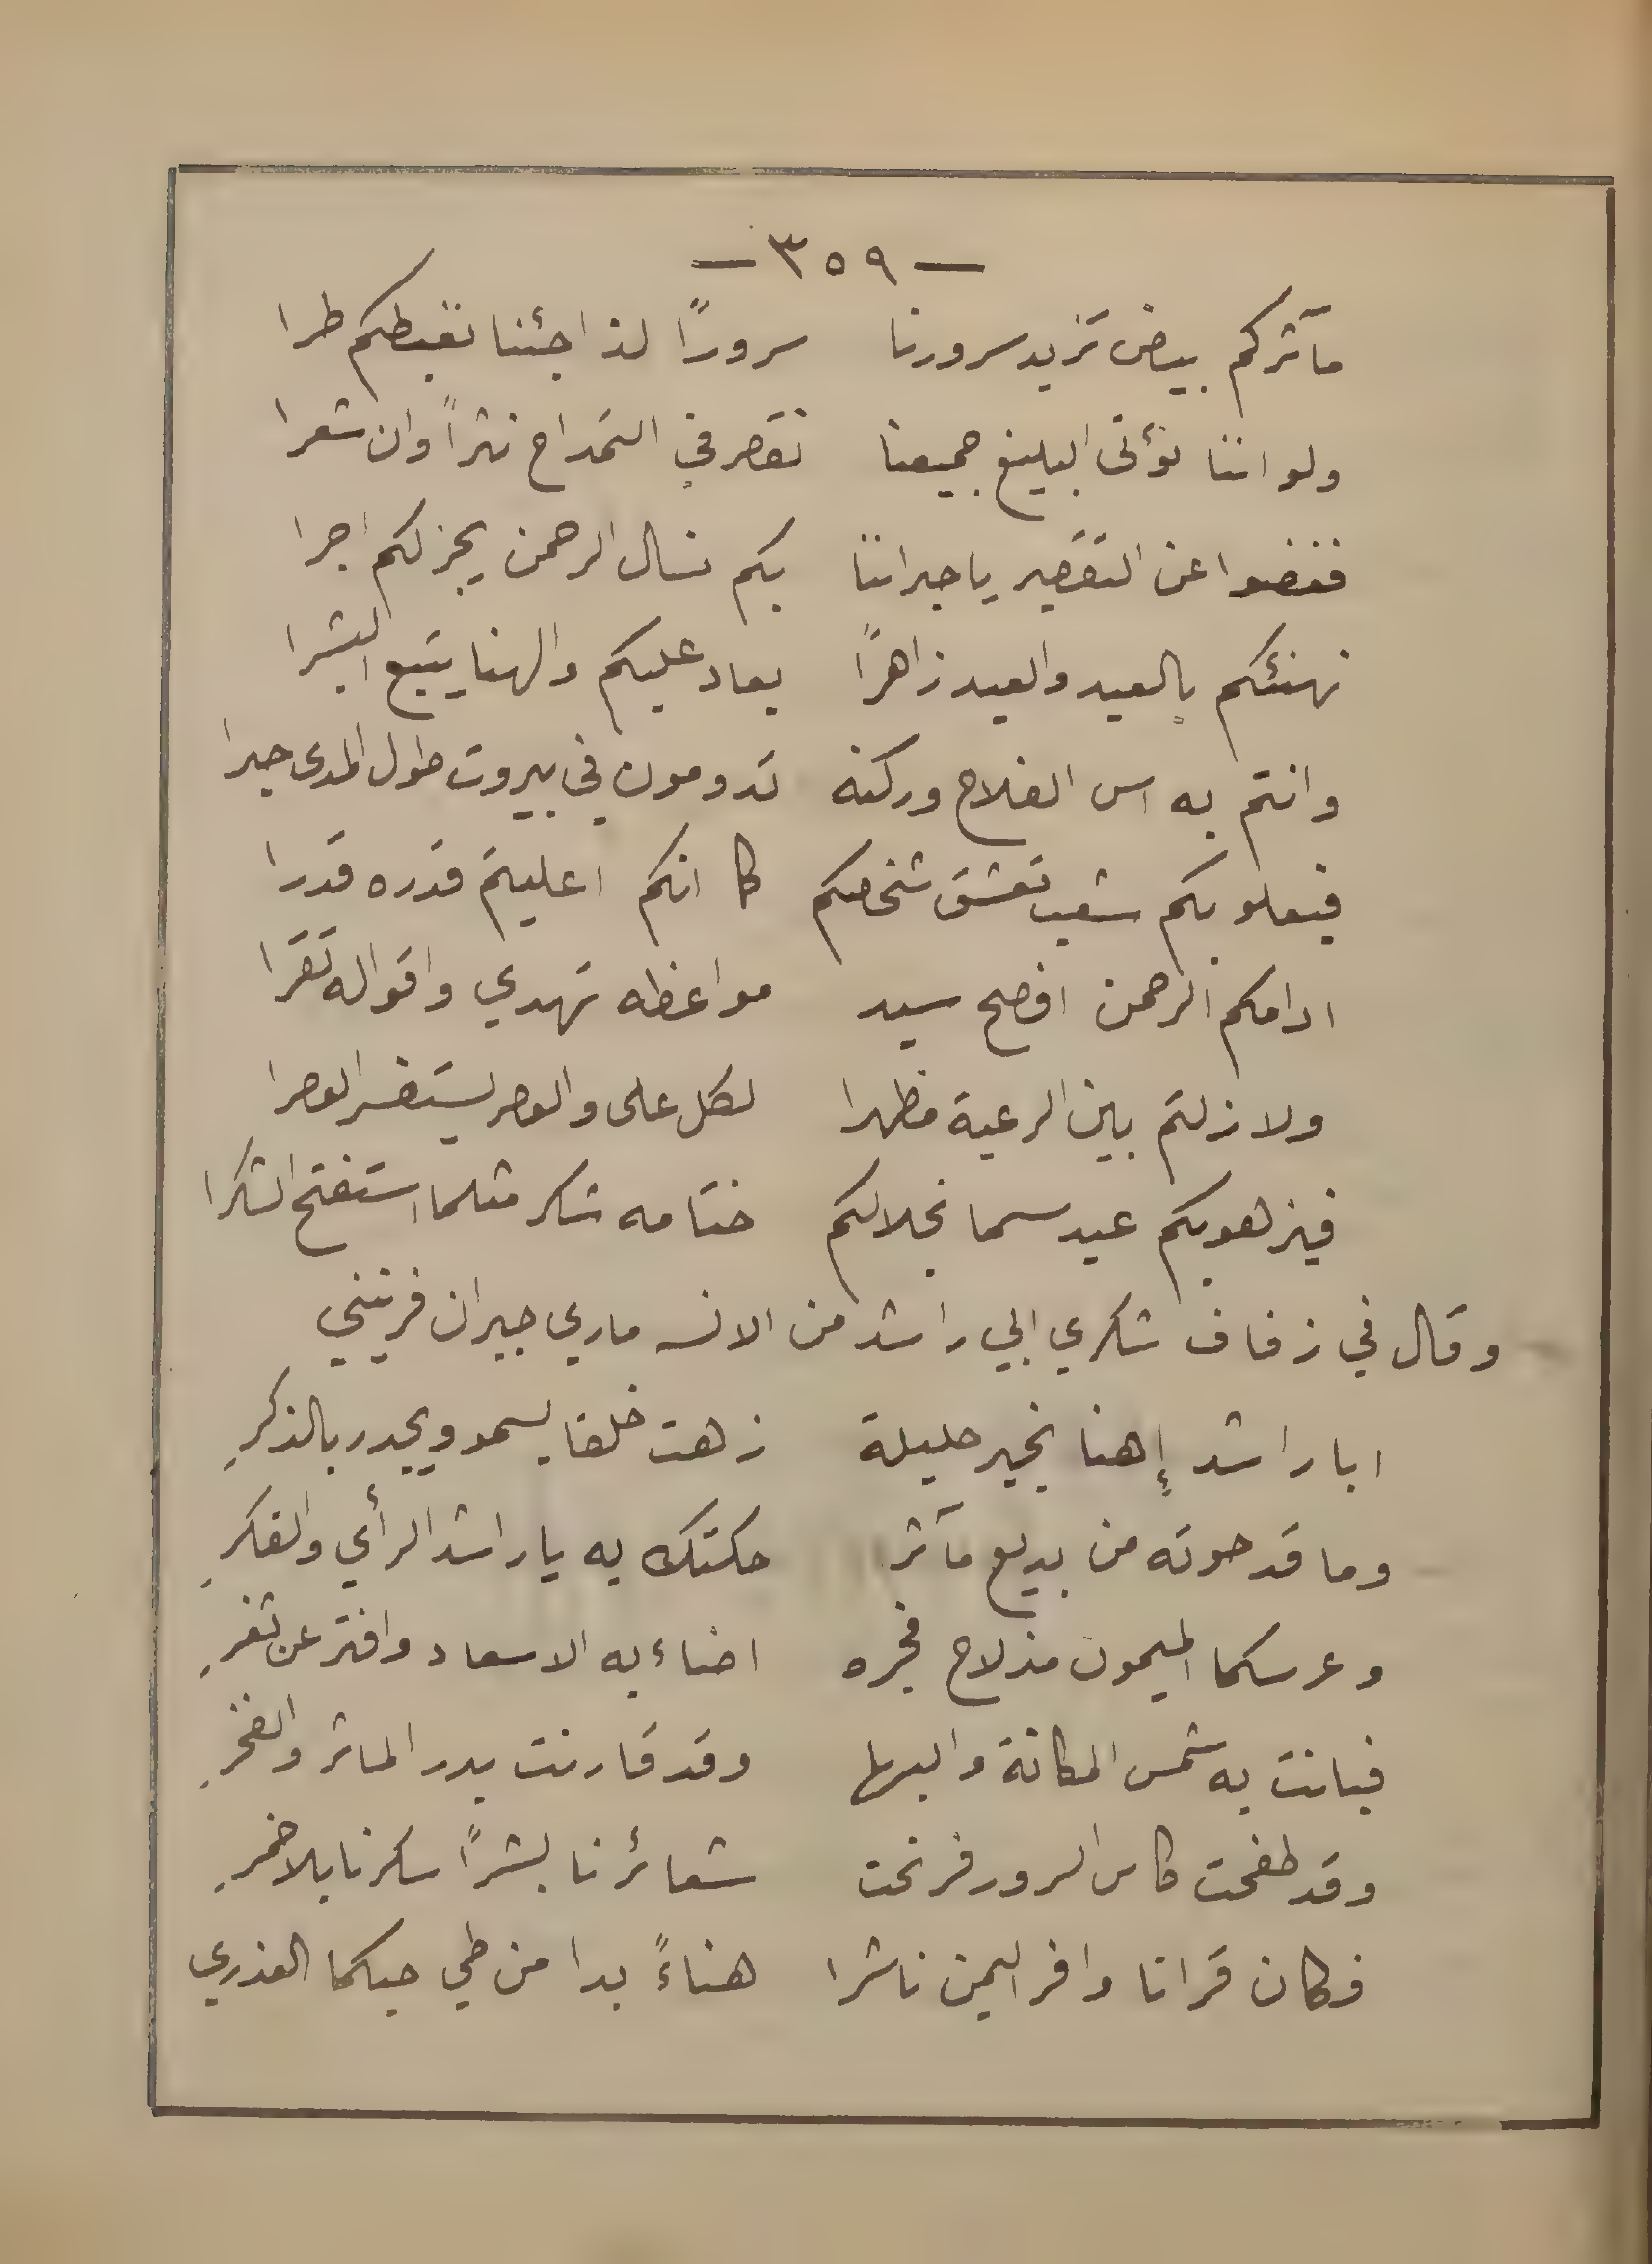 — ٣٥٩ —
مآثركم بيض تزيد سرورنا سرورًا لذا جئنا نغبطكم طرا
ولو اننا نؤتى البليغ جميعنا نقصر في التمداح نثراً وان شعرا
فغضوا عن التقصير يا جبراننا بكم نسال الرحمن يجزلكم اجرا
نهنئكم بالعيد والعيد زاهرًا يعاد عليكم والهنا يتبع البشرا
وانتم به اس الفلاح وركنه تدومون في بيروت طول المدى جبرا
فيعلو بكم شعب تعشق شخصكم كما انكم اعليتم قدره قدرا
ادامكم الرحمن افصح سيد مواعظه تهدي واقواله تقرا
ولا زلتم بين الرعية مظهرا لكل على والوصر يستغسر الوصرا
فيزهو بكم عيد سما بجلالكم ختامه شكر مثلما استفتح الشكرا
وقال في زفاف شكري ابي راشد من الانسه ماري جبران فرنيني
ابا راشد إهنا بخير حليلة زهت خلقا يسمو ويجدر بالذكرِ
وما قد حوته من بديع مآثر حكتك به يا راشد الرأي والفكرِ
وعرسكما الميمون مذ لاح فجره اضاء به الاسعاد وافتر عن ثغرِ
فبانت به شمس المكانة والبها وقد قارنت بدر الماثر والفخرِ
وقد طفحت كاس السرور فرنحت شعائرنا بشرًا سكرنا بلا خمرِ
فكان قرانا وافر اليمن ناشرا هناءً بدا من طي حبكما العذري